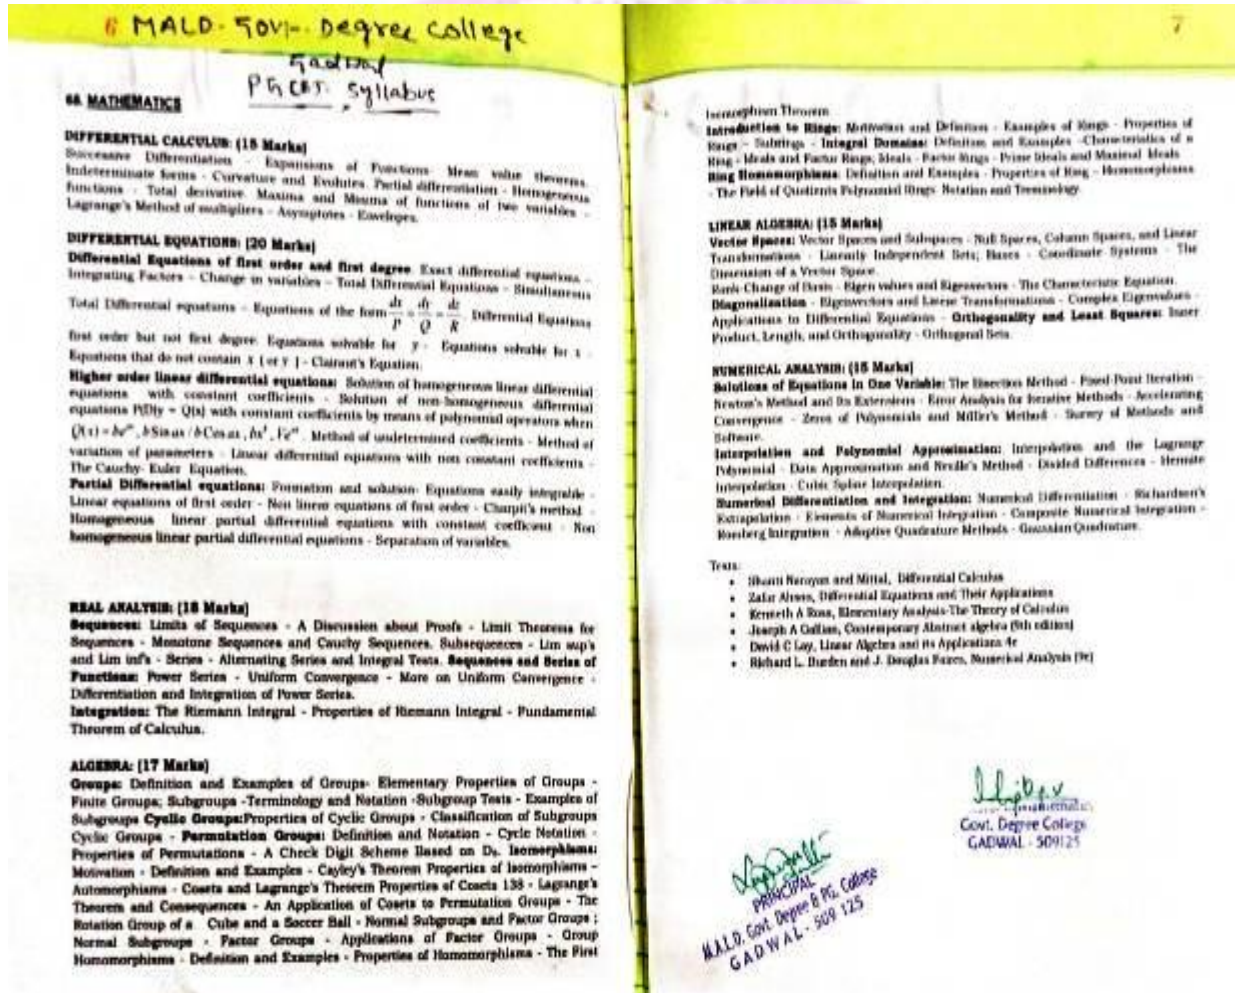 6 MALD. Govt. Degree College
Gadwal
PG CET. Syllabus
MATHEMATICS
DIFFERENTIAL CALCULUS: (15 Marks)
Successive Differentiation - Expansions of Functions- Mean value theorems.
Indeterminate forms - Curvature and Evolutes. Partial differentiation - Homogeneous
functions - Total derivative. Maxima and Minima of functions of two variables -
Lagrange's Method of multipliers - Asymptotes - Envelopes.
DIFFERENTIAL EQUATIONS: [20 Marks]
Differential Equations of first order and first degree Exact differential equations -
Integrating Factors - Change in variables - Total Differential Equations - Simultaneous
Total Differential equations - Equations of the form dx/P = dy/Q = dz/R . Differential Equations
first order but not first degree. Equations solvable for y - Equations solvable for x -
Equations that do not contain x ( or y ) - Clairaut's Equation.
Higher order linear differential equations: Solution of homogeneous linear differential
equations with constant coefficients - Solution of non-homogeneous differential
equations P(D)y = Q(x) with constant coefficients by means of polynomial operators when
Method of undetermined coefficients - Method of
variation of parameters - Linear differential equations with non constant coefficients -
The Cauchy- Euler Equation.
Partial Differential equations: Formation and solution- Equations easily integrable -
Linear equations of first order - Non linear equations of first order - Charpit's method -
Homogeneous linear partial differential equations with constant coefficient - Non
homogeneous linear partial differential equations - Separation of variables.
REAL ANALYSIS: [18 Marks]
Sequences: Limits of Sequences - A Discussion about Proofs - Limit Theorems for
Sequences - Monotone Sequences and Cauchy Sequences. Subsequences - Lim sup's
and Lim inf's - Series - Alternating Series and Integral Tests. Sequences and Series of
Functions: Power Series - Uniform Convergence - More on Uniform Convergence -
Differentiation and Integration of Power Series.
Integration: The Riemann Integral - Properties of Riemann Integral - Fundamental
Theorem of Calculus.
ALGEBRA: [17 Marks]
Groups: Definition and Examples of Groups- Elementary Properties of Groups -
Finite Groups; Subgroups -Terminology and Notation -Subgroup Tests - Examples of
Subgroups Cyclic Groups:Properties of Cyclic Groups - Classification of Subgroups
Cyclic Groups - Permutation Groups: Definition and Notation - Cycle Notation -
Properties of Permutations - A Check Digit Scheme Based on D5. Isomorphisms:
Motivation - Definition and Examples - Cayley's Theorem Properties of Isomorphisms -
Automorphisms - Cosets and Lagrange's Theorem Properties of Cosets 138 - Lagrange's
Theorem and Consequences - An Application of Cosets to Permutation Groups - The
Rotation Group of a Cube and a Soccer Ball - Normal Subgroups and Factor Groups ;
Normal Subgroups - Factor Groups - Applications of Factor Groups - Group
Homomorphisms - Definition and Examples - Properties of Homomorphisms - The First
7
Isomorphism Theorem
Introduction to Rings: Motivation and Definition - Examples of Rings - Properties of
Rings - Subrings - Integral Domains: Definition and Examples -Characteristics of a
Ring - Ideals and Factor Rings, Ideals - Factor Rings - Prime Ideals and Maximal Ideals
Ring Homomorphisms: Definition and Examples - Properties of Ring - Homomorphisms
- The Field of Quotients Polynomial Rings: Notation and Terminology.
LINEAR ALGEBRA: (15 Marks)
Vector Spaces: Vector Spaces and Subspaces - Null Spaces, Column Spaces, and Linear
Transformations - Linearly Independent Sets; Bases - Coordinate Systems - The
Dimension of a Vector Space.
Rank-Change of Basis - Eigen values and Eigenvectors - The Characteristic Equation.
Diagonalization - Eigenvectors and Linear Transformations - Complex Eigenvalues -
Applications to Differential Equations - Orthogonality and Least Squares: Inner
Product, Length, and Orthogonality - Orthogonal Sets.
NUMERICAL ANALYSIS: (15 Marks)
Solutions of Equations in One Variable: The Bisection Method - Fixed-Point Iteration -
Newton's Method and Its Extensions - Error Analysis for Iterative Methods - Accelerating
Convergence - Zeros of Polynomials and Müller's Method - Survey of Methods and
Software.
Interpolation and Polynomial Approximation: Interpolation and the Lagrange
Polynomial - Data Approximation and Neville's Method - Divided Differences - Hermite
Interpolation - Cubic Spline Interpolation.
Numerical Differentiation and Integration: Numerical Differentiation - Richardson's
Extrapolation - Elements of Numerical Integration - Composite Numerical Integration -
Romberg Integration - Adaptive Quadrature Methods - Gaussian Quadrature.
Texts:
• Shanti Narayan and Mittal, Differential Calculus
• Zafar Ahsan, Differential Equations and Their Applications
• Kenneth A Ross, Elementary Analysis-The Theory of Calculus
• Joseph A Gallian, Contemporary Abstract algebra (9th edition)
• David C Lay, Linear Algebra and its Applications 4e
• Richard L. Burden and J. Douglas Faires, Numerical Analysis (9e)
Govt. Degree College
GADWAL - 509125
PRINCIPAL
M.A.L.D. Govt. Degree & PG. College
GADWAL - 509 125